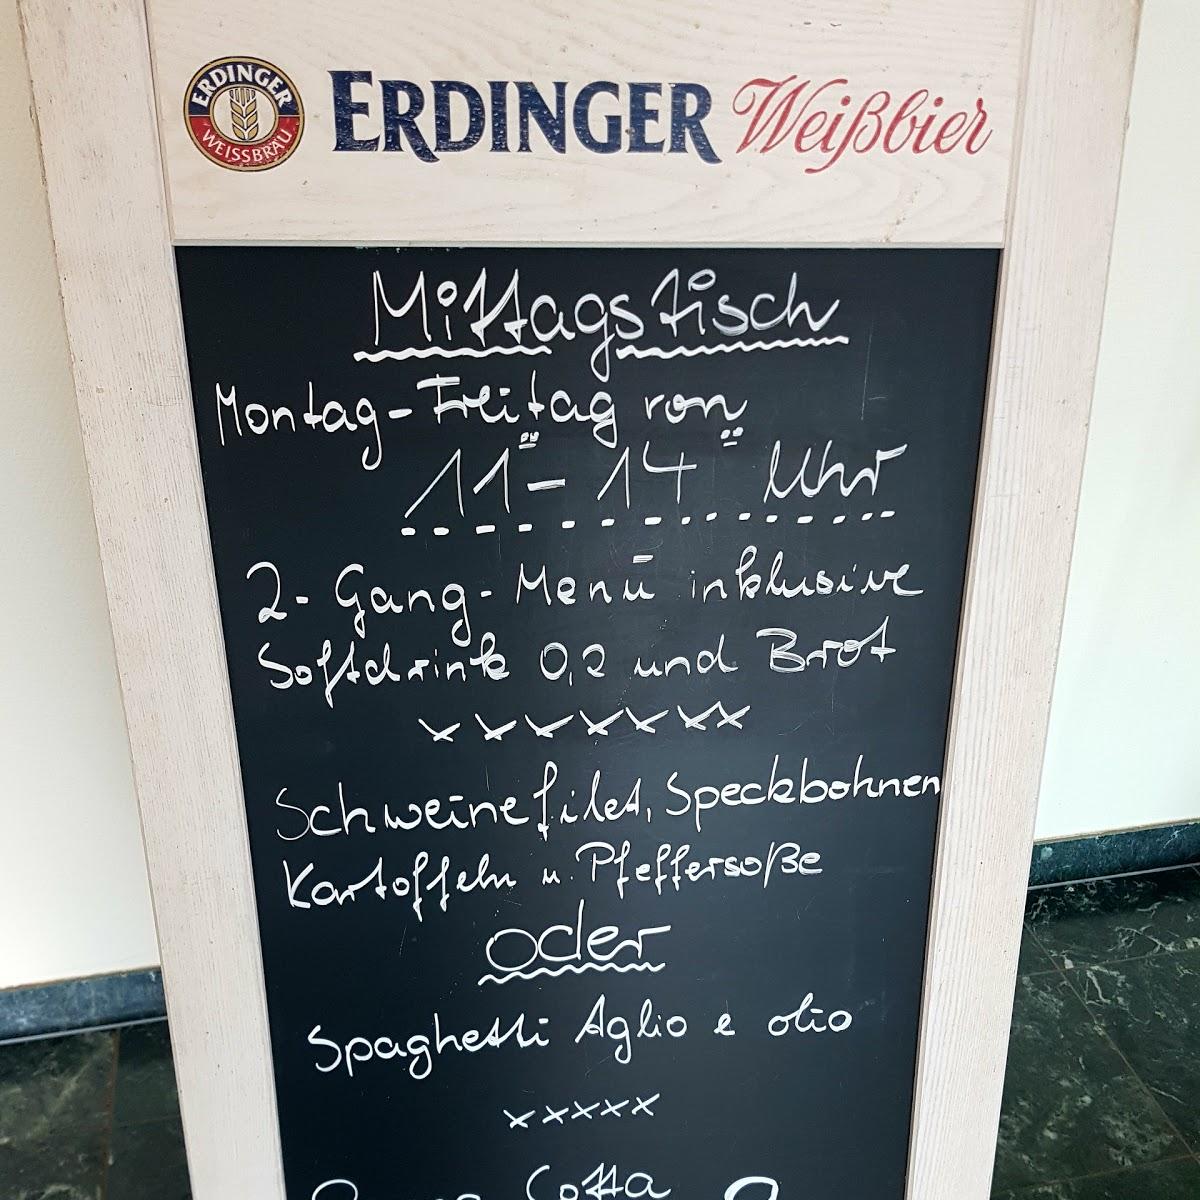 ERDINGER
WEISSBRÄU
ERDINGER Weißbier
Mittagstisch
Montag-Freitag von
11- 14 Uhr
2-Gang-Menü inklusive
Softdrink 0,2 und Brot
xxxxxxx
Schweinefilet, Speckbohnen
Kartoffeln u. Pfeffersoße
oder
Spaghetti Aglio e olio
xxxxx
Cotta